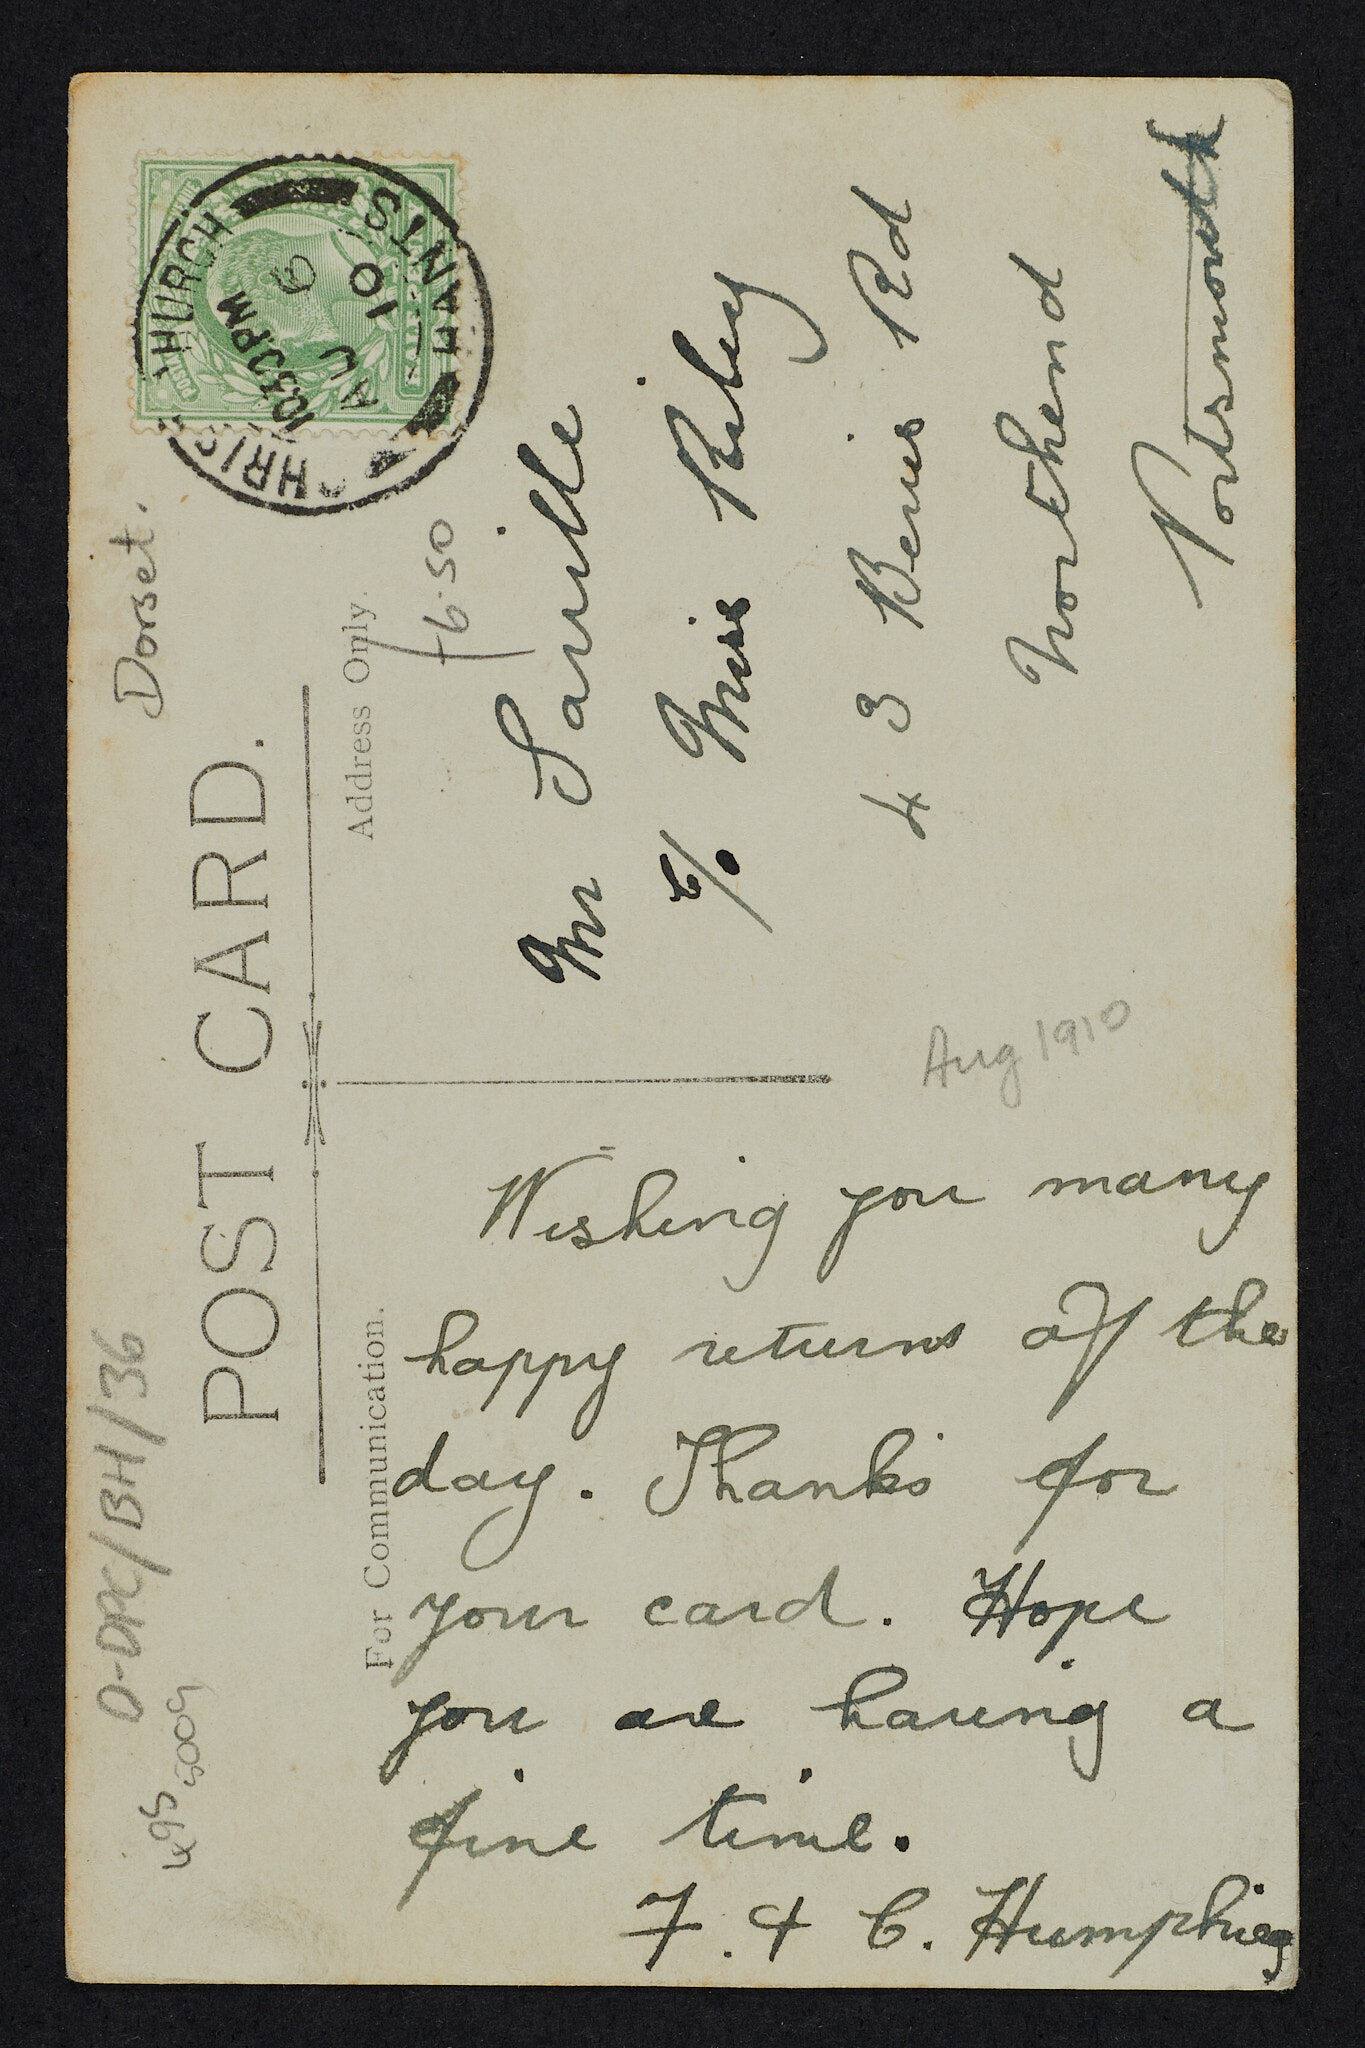 Dorset.
O-DPC/BH/36
495
5009
POST CARD.
For Communication.
Address Only.
£6.50
CHRISTCHURCH
10.30 PM
AU 6
10
HANTS
Wishing you many
happy returns of the
day. Thanks for
your card. Hope
you are having a
fine time.
F. & C. Humphies
Aug 1910
Mr Saville
c/o Miss Riley
43 Rd
Northend
Portsmouth